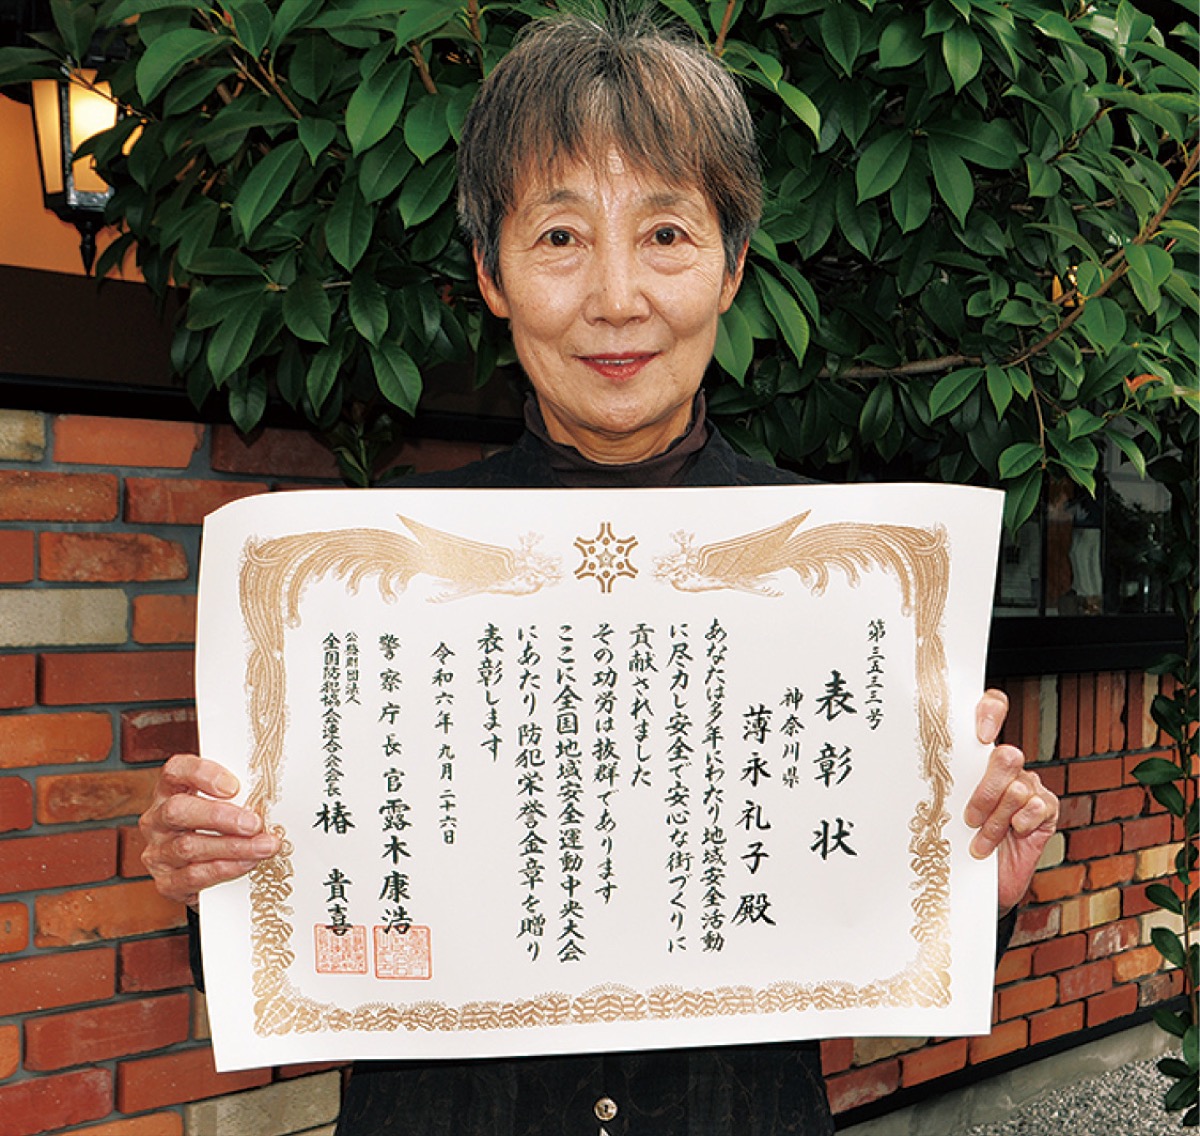 第三五三三号
表彰状
神奈川県
薄永礼子殿
あなたは多年にわたり地域安全活動
に尽力し安全で安心な街づくりに
貢献されました
その功労は抜群であります
ここに全国地域安全運動中央大会
にあたり防犯栄誉金章を贈り
表彰します
令和六年九月二十六日
警察庁長官露木康浩
公益財団法人
全国防犯協会連合会会長椿貴喜